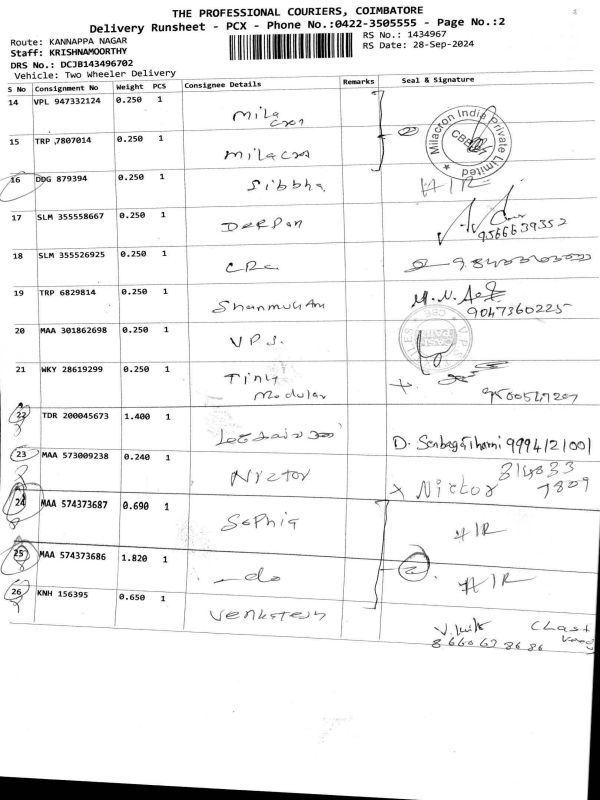 THE PROFESSIONAL COURIERS, COIMBATORE
Delivery Runsheet - PCX - Phone No.:0422-3505555 - Page No.:2
Route: KANNAPPA NAGAR
RS No.: 1434967
Staff: KRISHNAMOORTHY
RS Date: 28-Sep-2024
DRS No.: DCJB143496702
Vehicle: Two Wheeler Delivery
S No Consignment No Weight PCS Consignee Details Remarks Seal & Signature
14 VPL 947332124 0.250 1 Mila cron
15 TRP 7807014 0.250 1 Milacro
Milacron India Private Limited
CBE
16 DDG 879394 0.250 1 Sibbha HIR
17 SLM 355558667 0.250 1 Deepan
9566639352
18 SLM 355526925 0.250 1
19 TRP 6829814 0.250 1 Shanmugam
9047360225
20 MAA 301862698 0.250 1 VPS.
21 WKY 28619299 0.250 1 Tiny
Modular
22 TDR 200045673 1.400 1 9994121001
23 MAA 573009238 0.240 1 Nictor x Nictor 314833
7809
24 MAA 574373687 0.690 1 Sophia HIR
25 MAA 574373686 1.820 1 -do HIR
26 KNH 156395 0.650 1 Venkatesh
8660678686